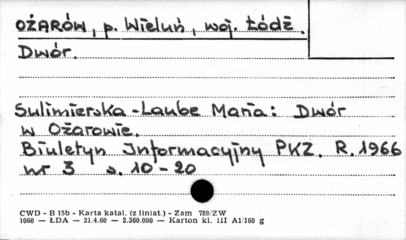 OŻARÓW, p. Wieluń, woj. Łódź.
Dwór.
Sulimierska-Laube Maria: Dwór
w Ożarowie.
Biuletyn Informacyjny PKZ. R. 1966
nr 3 s. 10-20
CWD - B 15b - Karta katal. (z liniat.) - Zam 788/ZW
1060 — ŁDA — 21.4.60 - 2.360.000 — Karton kl. III A1/160 g